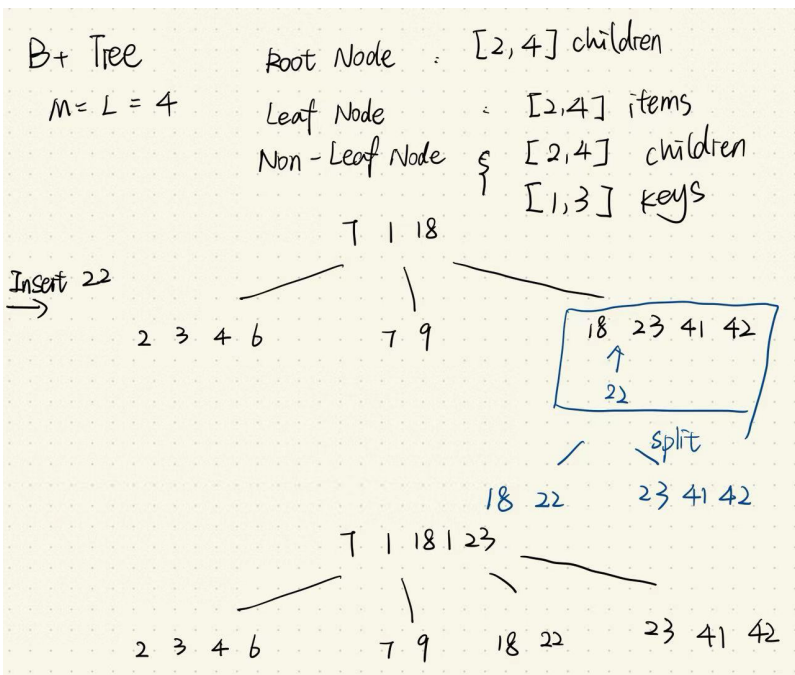 B+ Tree
M = L = 4
Root Node : [2,4] children
Leaf Node : [2,4] items
Non-Leaf Node { [2,4] children
[1,3] keys
7 | 18
Insert 22
→
2 3 4 6
7 9
18 23 41 42
↑
22
split
18 22
23 41 42
7 | 18 | 23
2 3 4 6
7 9
18 22
23 41 42